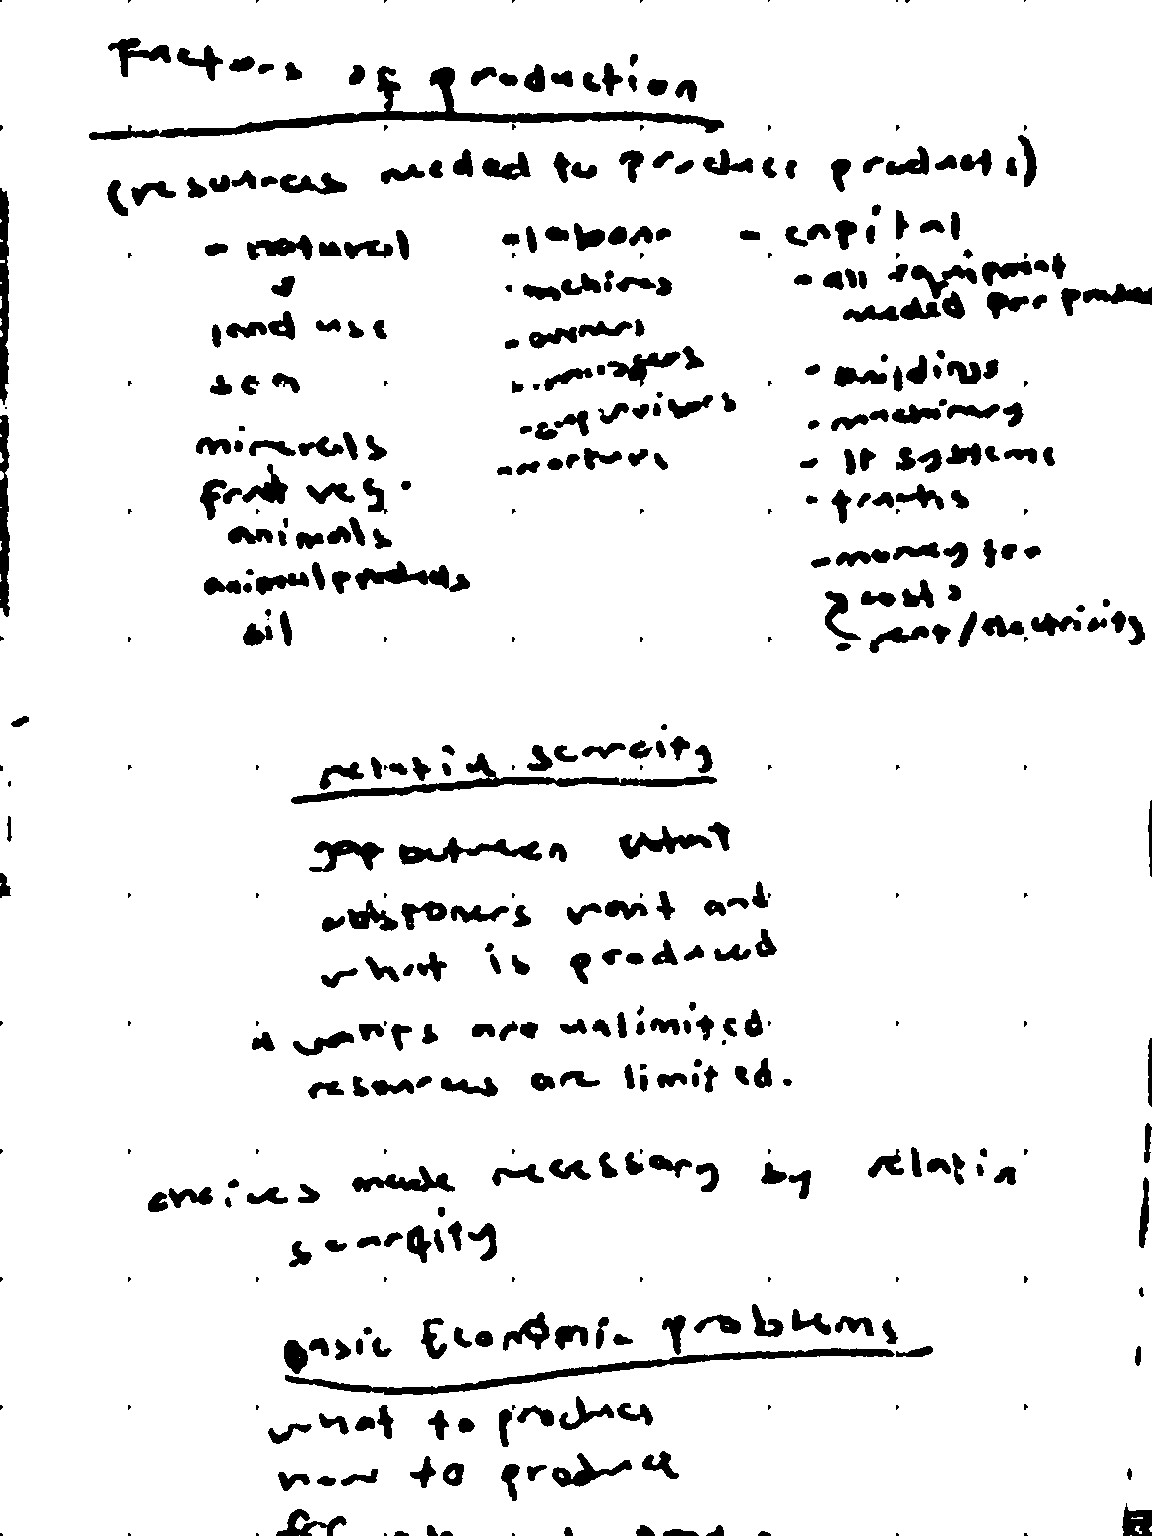 Factors of production
(resources needed to produce products)
- natural
land use
sea
minerals
fruit veg.
animals
animal products
oil
- labour
- machines
- owners
- managers
- supervisors
- workers
- capital
- all equipment
needed for
- buildings
- machinery
- IT systems
- trucks
- money for
costs
- rent/electricity
relative scarcity
gap between what
customers want and
what is produced
wants are unlimited
resources are limited.
choices made necessary by relative
scarcity
Basic Economic problems
what to produce
how to produce
for